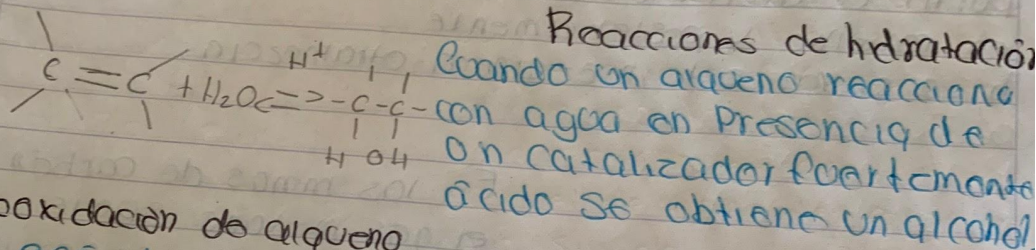 Reacciones de hidratación
Cuando un alqueno reacciona
con agua en presencia de
un catalizador fuertemente
ácido se obtiene un alcohol
C=C + H2O <=> -C-C-
H+
H OH
oxidación de alqueno